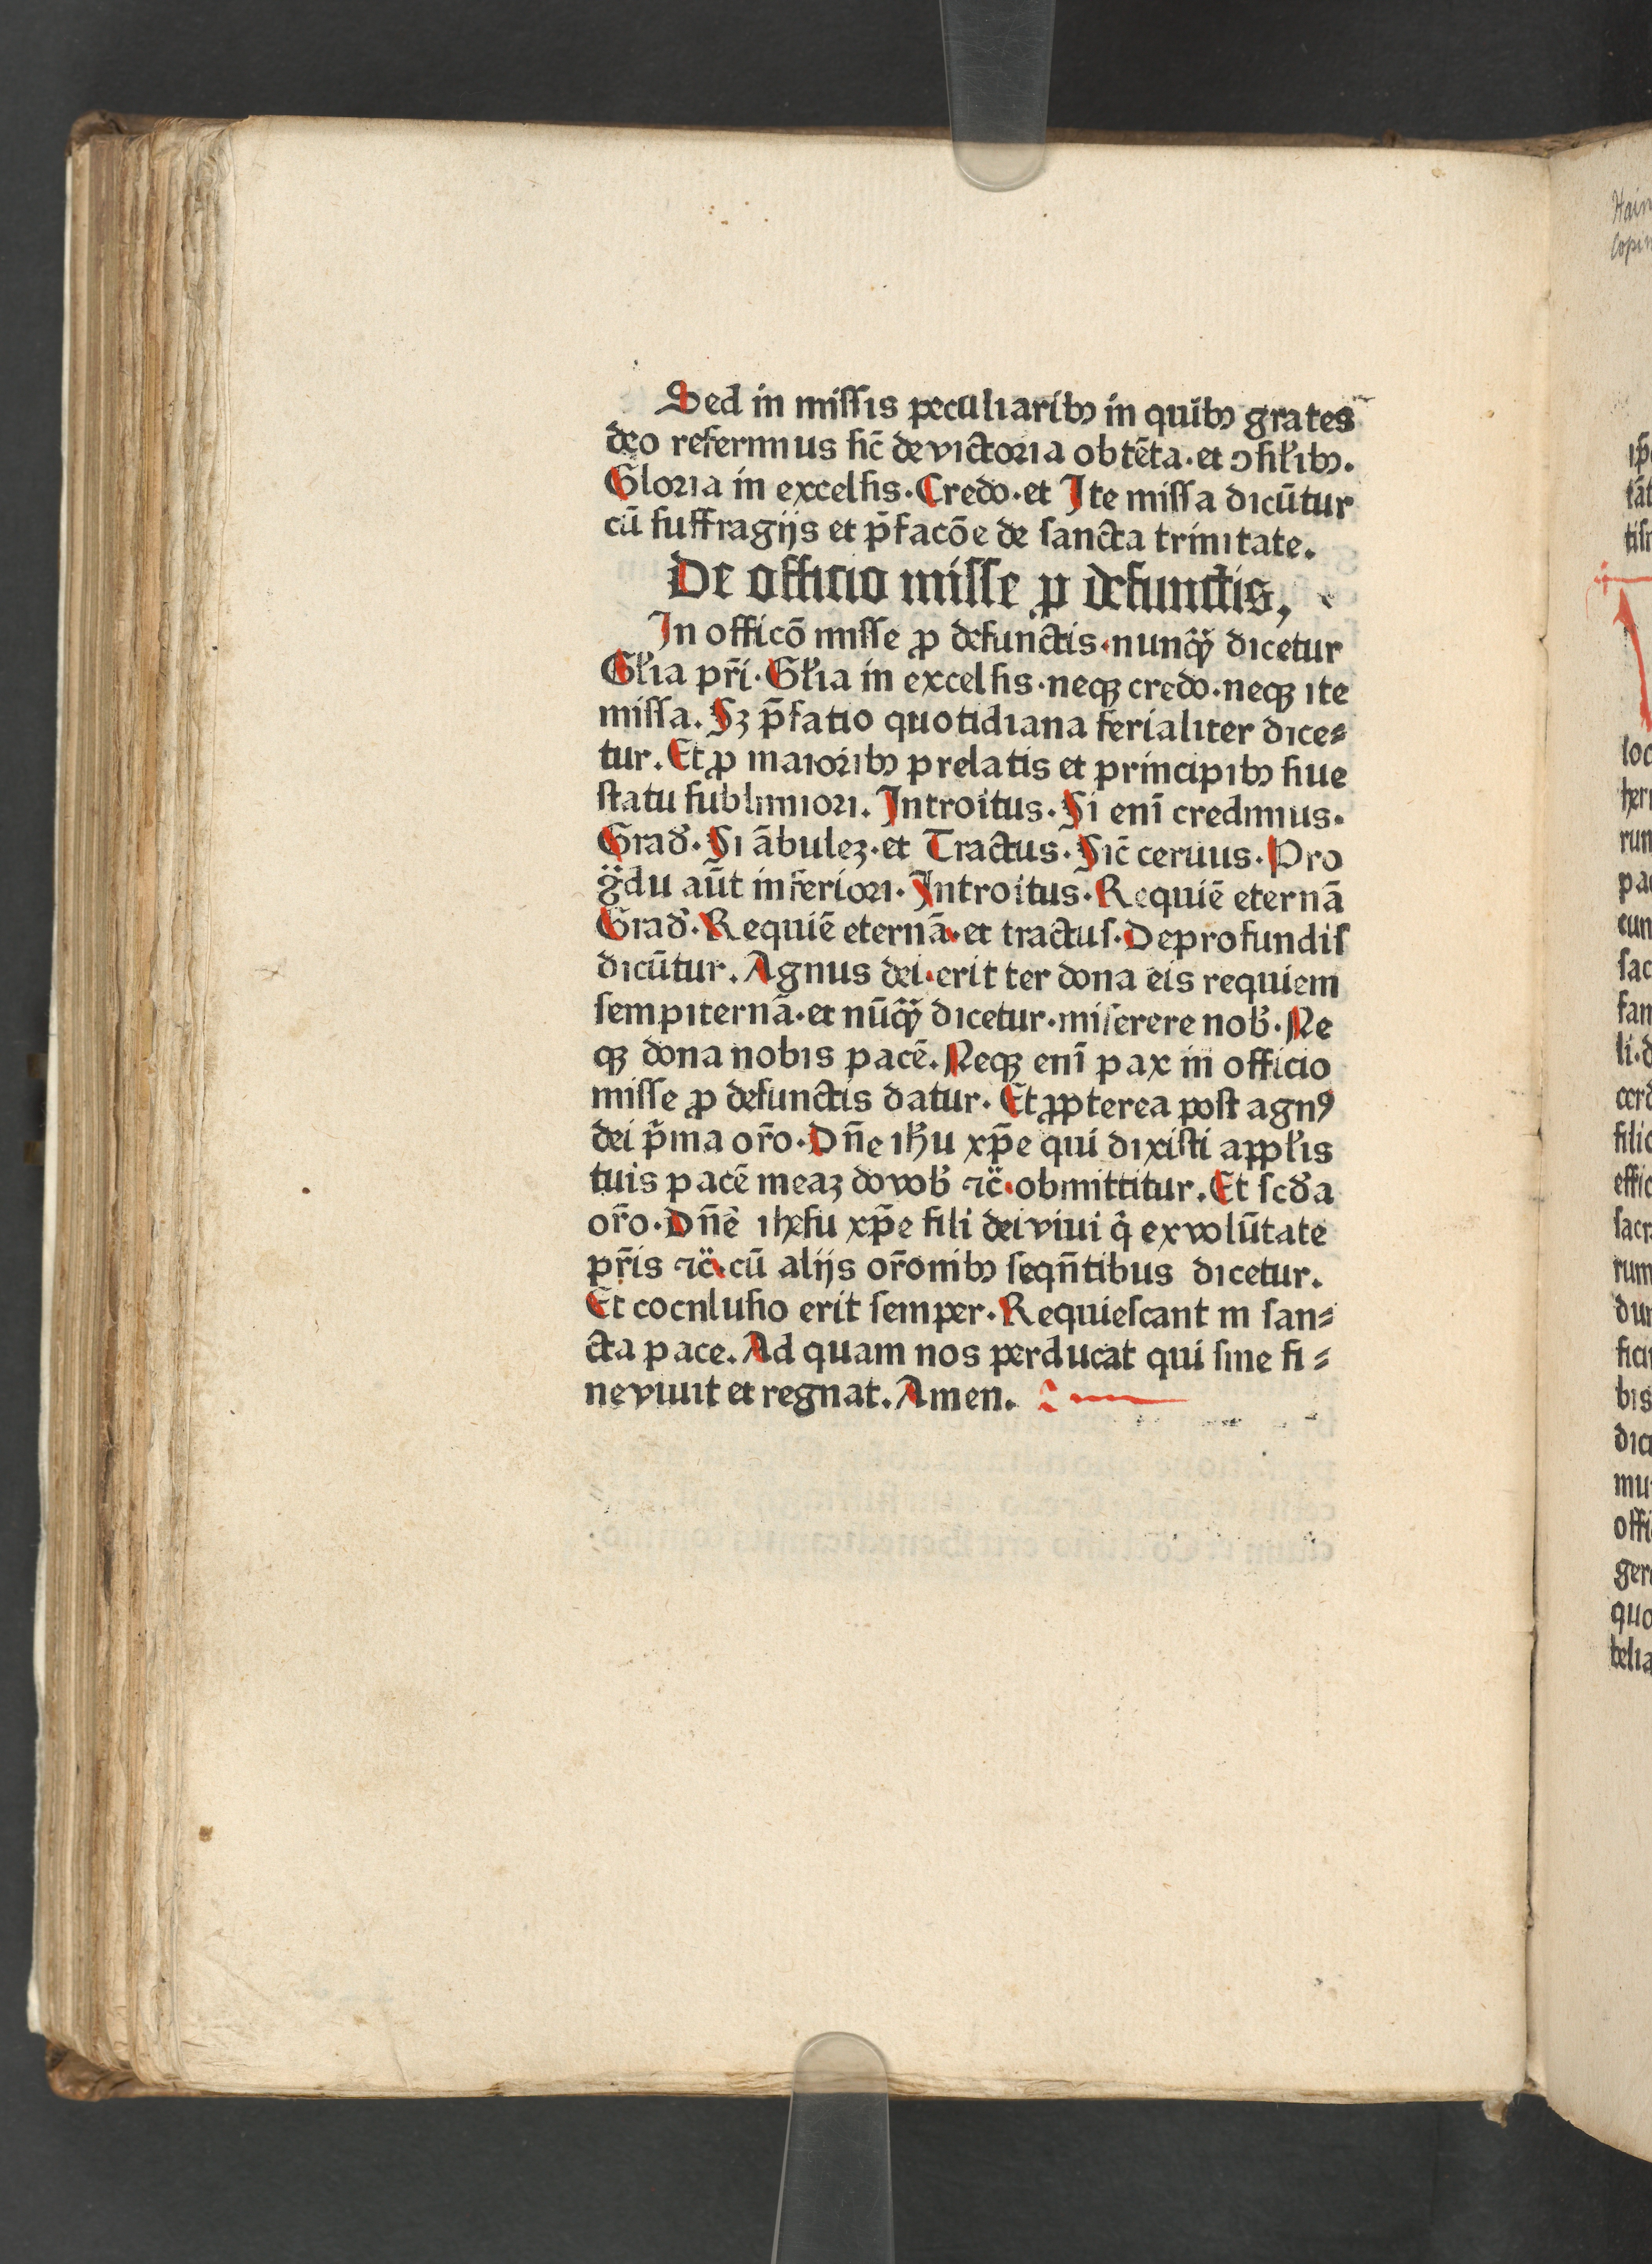 Sed in miſſis peculiaribꝫ in quibꝫ grates
deo referimus ſic̄ de victoria obtēta·et ↄſil̓ibꝫ.
Gloria in excelſis·Credo·et Ite miſſa dicūtur
cū ſuffragijs et p̄facōe de ſancta trinitate.
De officio miſſe ꝓ defunctis,
In officō miſſe ꝓ defunctis·nunꝙ̃ dicetur
Gl̓ia pr̄i·Gl̓ia in excelſis·neqꝫ credo·neqꝫ ite
miſſa. Sꝫ p̄fatio quotidiana ferialiter dice⸗
tur. Et ꝓ maioribꝫ prelatis et principibꝫ ſiue
ſtatu ſublimiori. Introitus·Si enī credimus·
Grad̓·Si ābulez·et Tractus·Sic̄ ceruus·Pro
g̈du aūt inferiori·Introitus·Requiē eternā
Grad̓·Requiē eternā·et tractuſ·Deprofundiſ
dicūtur. Agnus dei·erit ter dona eis requiem
ſempiternā·et nūꝙ̃ dicetur·miſerere nob̓·Ne
qꝫ dona nobis pacē. Neqꝫ enī pax in officio
miſſe ꝓ defunctis datur. Et ꝓpterea poſt agnꝰ
dei p̄ma or̄o·Dn̄e ih̓u xp̄e qui dixiſti appl̓is
tuis pacē meaz do vob̓ ⁊c̈·obmittitur. Et ſcd̓a
or̄o·Dn̄e iheſu xp̄e fili dei viui q̇ ex volūtate
pr̄is ⁊c̈·cū alijs or̄onibꝫ ſeqn̄tibus dicetur.
Et cocnluſio erit ſemper·Requieſcant in ſan⸗
cta pace. Ad quam nos perducat qui ſine fi⸗
ne viuit et regnat. Amen.